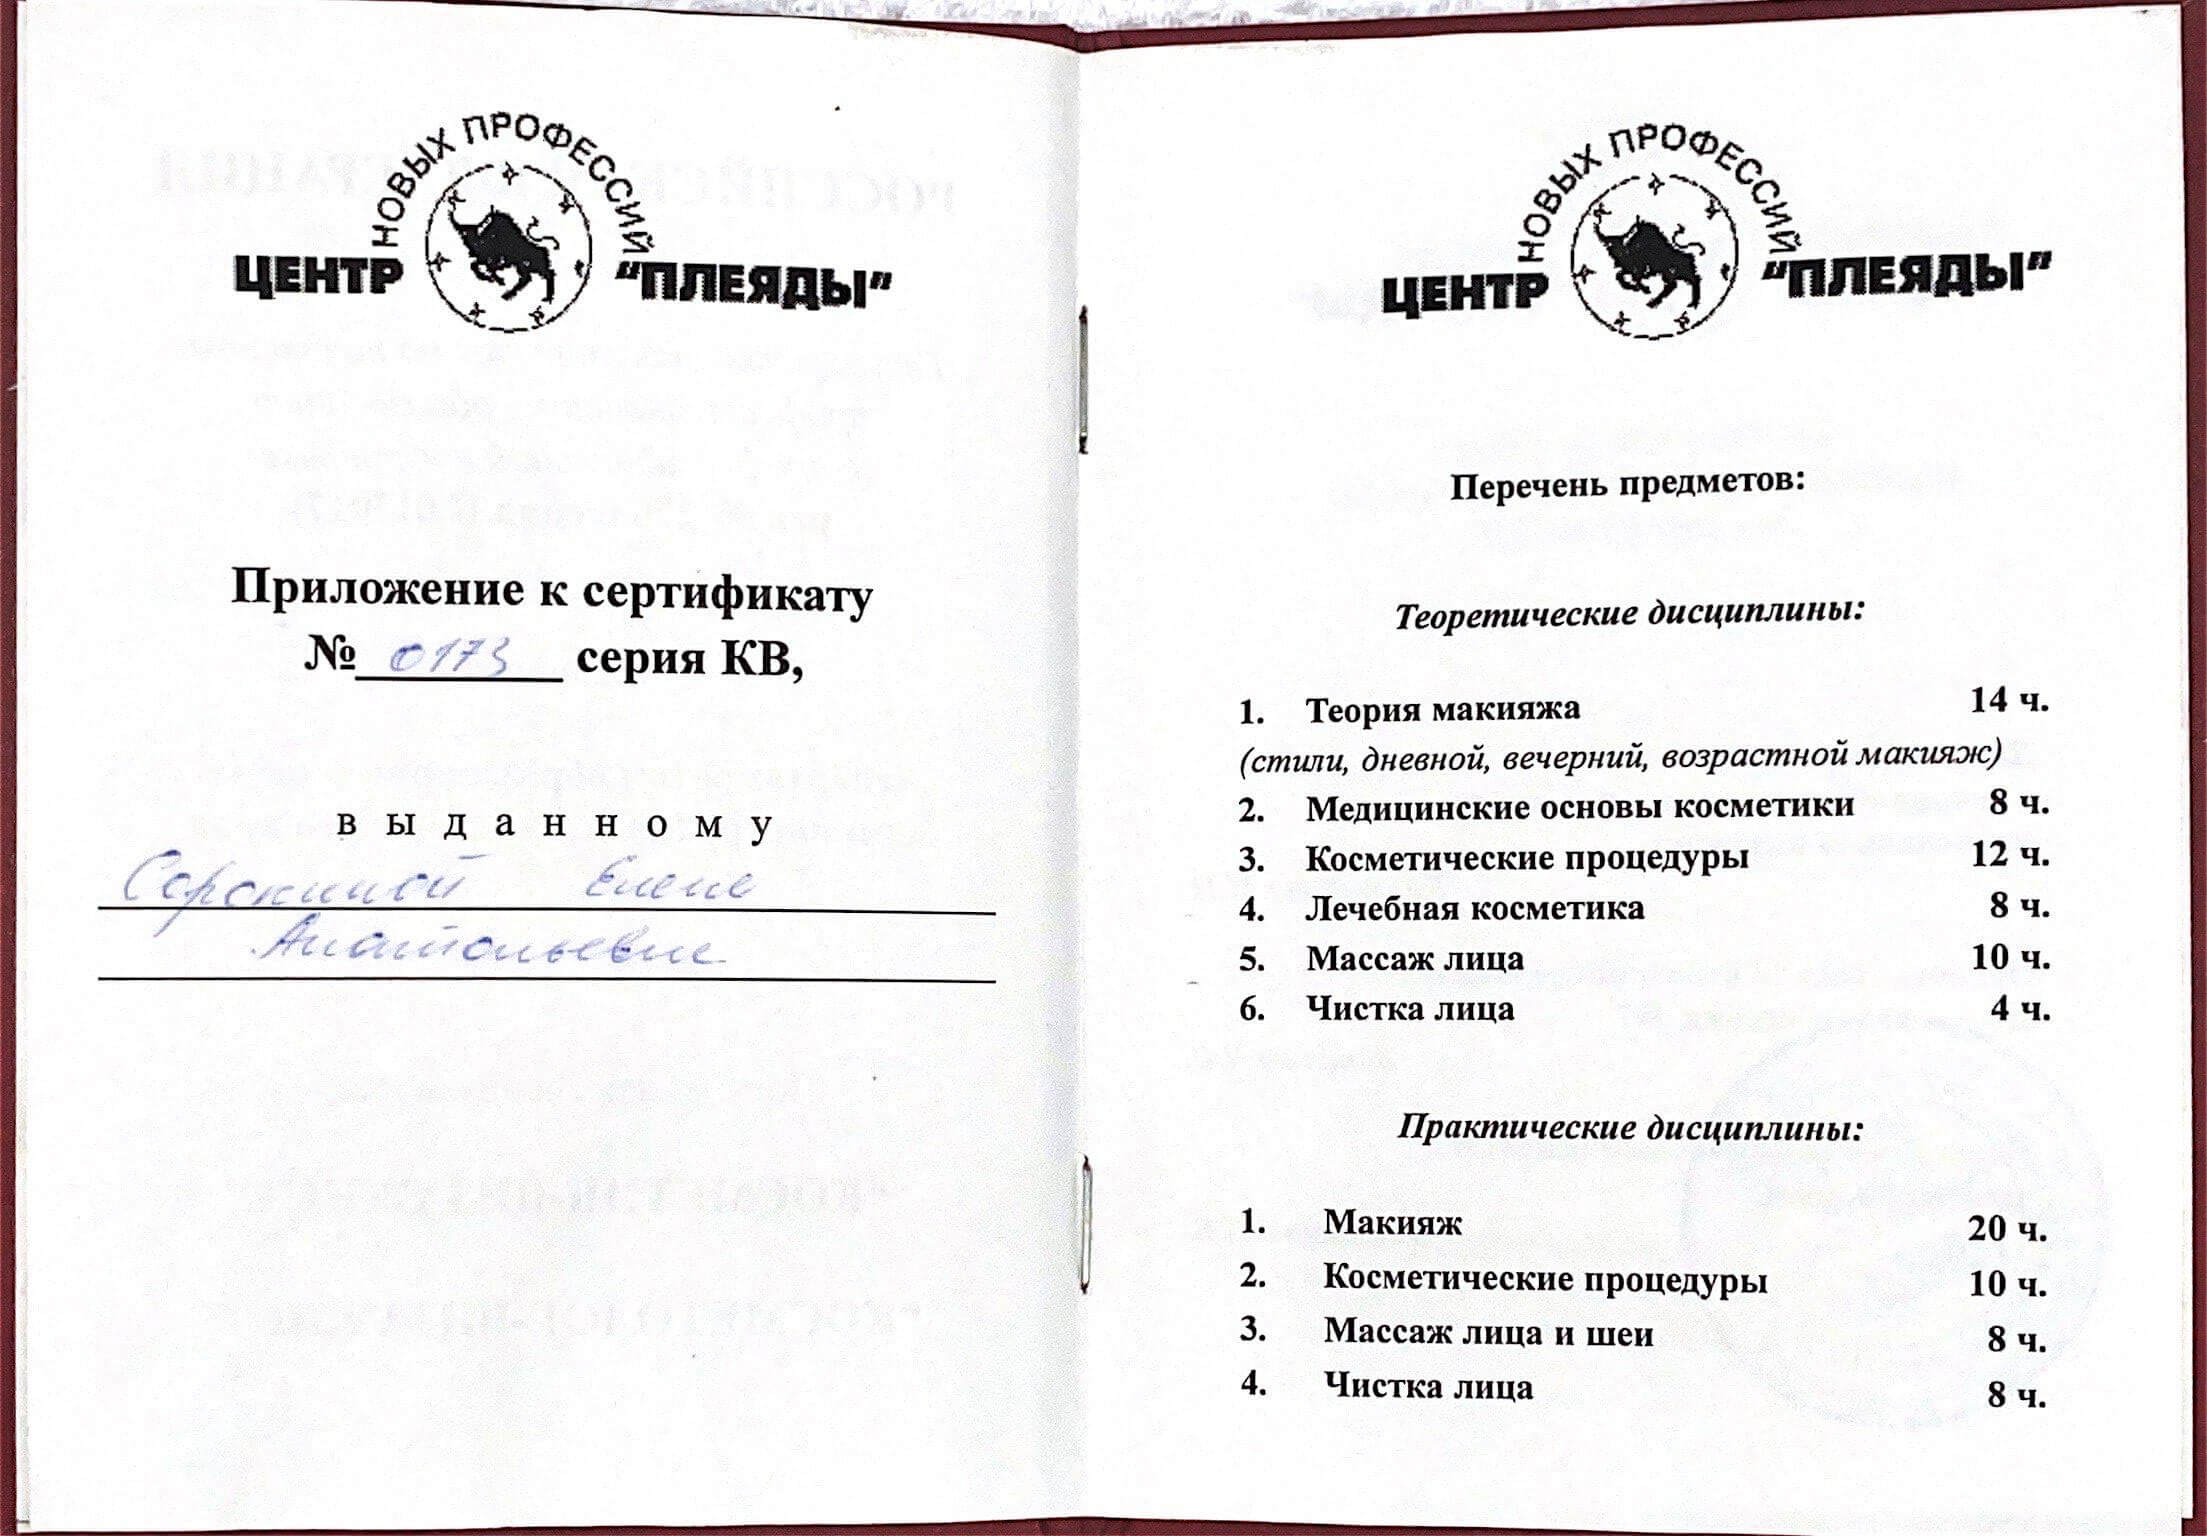 НОВЫХ ПРОФЕССИЙ
ЦЕНТР "ПЛЕЯДЫ"
Приложение к сертификату
№ 0173 серия КВ,
выданному
Сорокиной Елене
Анатольевне
НОВЫХ ПРОФЕССИЙ
ЦЕНТР "ПЛЕЯДЫ"
Перечень предметов:
Теоретические дисциплины:
1. Теория макияжа 14 ч.
(стили, дневной, вечерний, возрастной макияж)
2. Медицинские основы косметики 8 ч.
3. Косметические процедуры 12 ч.
4. Лечебная косметика 8 ч.
5. Массаж лица 10 ч.
6. Чистка лица 4 ч.
Практические дисциплины:
1. Макияж 20 ч.
2. Косметические процедуры 10 ч.
3. Массаж лица и шеи 8 ч.
4. Чистка лица 8 ч.